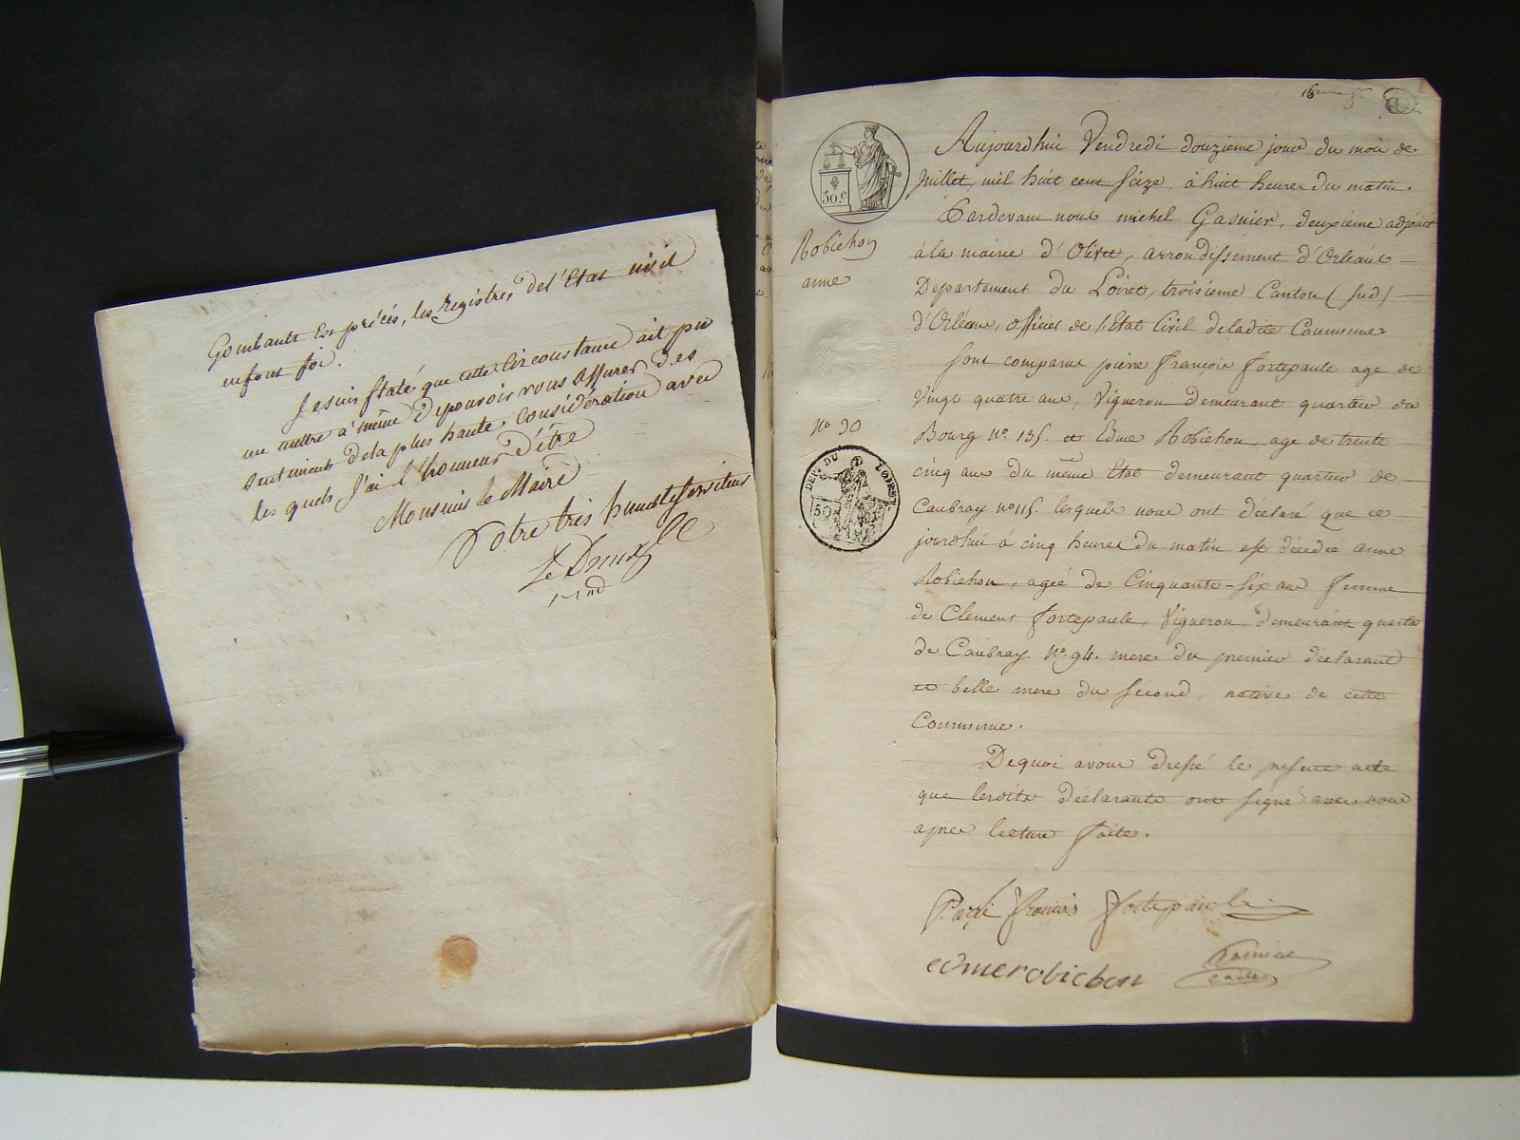 tombants en procès, les Registres de l'Etat civil
enfont foi.
Je suis flaté que cette Circonstance ait pu
me mettre à même de pouvoir vous Assurer des
Sentiments de la plus haute Considération avec
les quels J'ai l'honneur d'être
Monsieur le Maire
Votre très humble Serviteur
Aujourdhui Vendredi douzieme jour du mois de
Juillet, mil huit cent Seize, à huit heures du matin.
Pardevant nous michel Gasnier, deuxieme adjoint
à la mairie d'Olivet, arrondissement d'Orléans
Departement du Loiret, troisieme Canton (Sud)
d'Orléans, officier de l'Etat Civil de ladite Commune
Sont comparus pierre françois fortepaule age de
Vingt quatre ans, Vigneron demeurant quartier du
Bourg No. 135. et Edme Robichon age de trente
cinq ans du même Etat demeurant quartier de
Caubray no 115. lesquels nous ont déclaré que ce
jourdhui à cinq heures du matin est décédée anne
Robichon, ageé de Cinquante-six ans femme
de Clement fortepaule, Vigneron demeurant quartier
de Caubray No. 94. mere du premier déclarant
et belle mere du Second, native de cette
Commune.
De quoi avons dressé le présent acte
que lesdits déclarants ont signé avec nous
après lecture faite.
Robichon
anne
No 30
50 c
DEP. DU LOIRET
françois fortepaule
edmerobichon